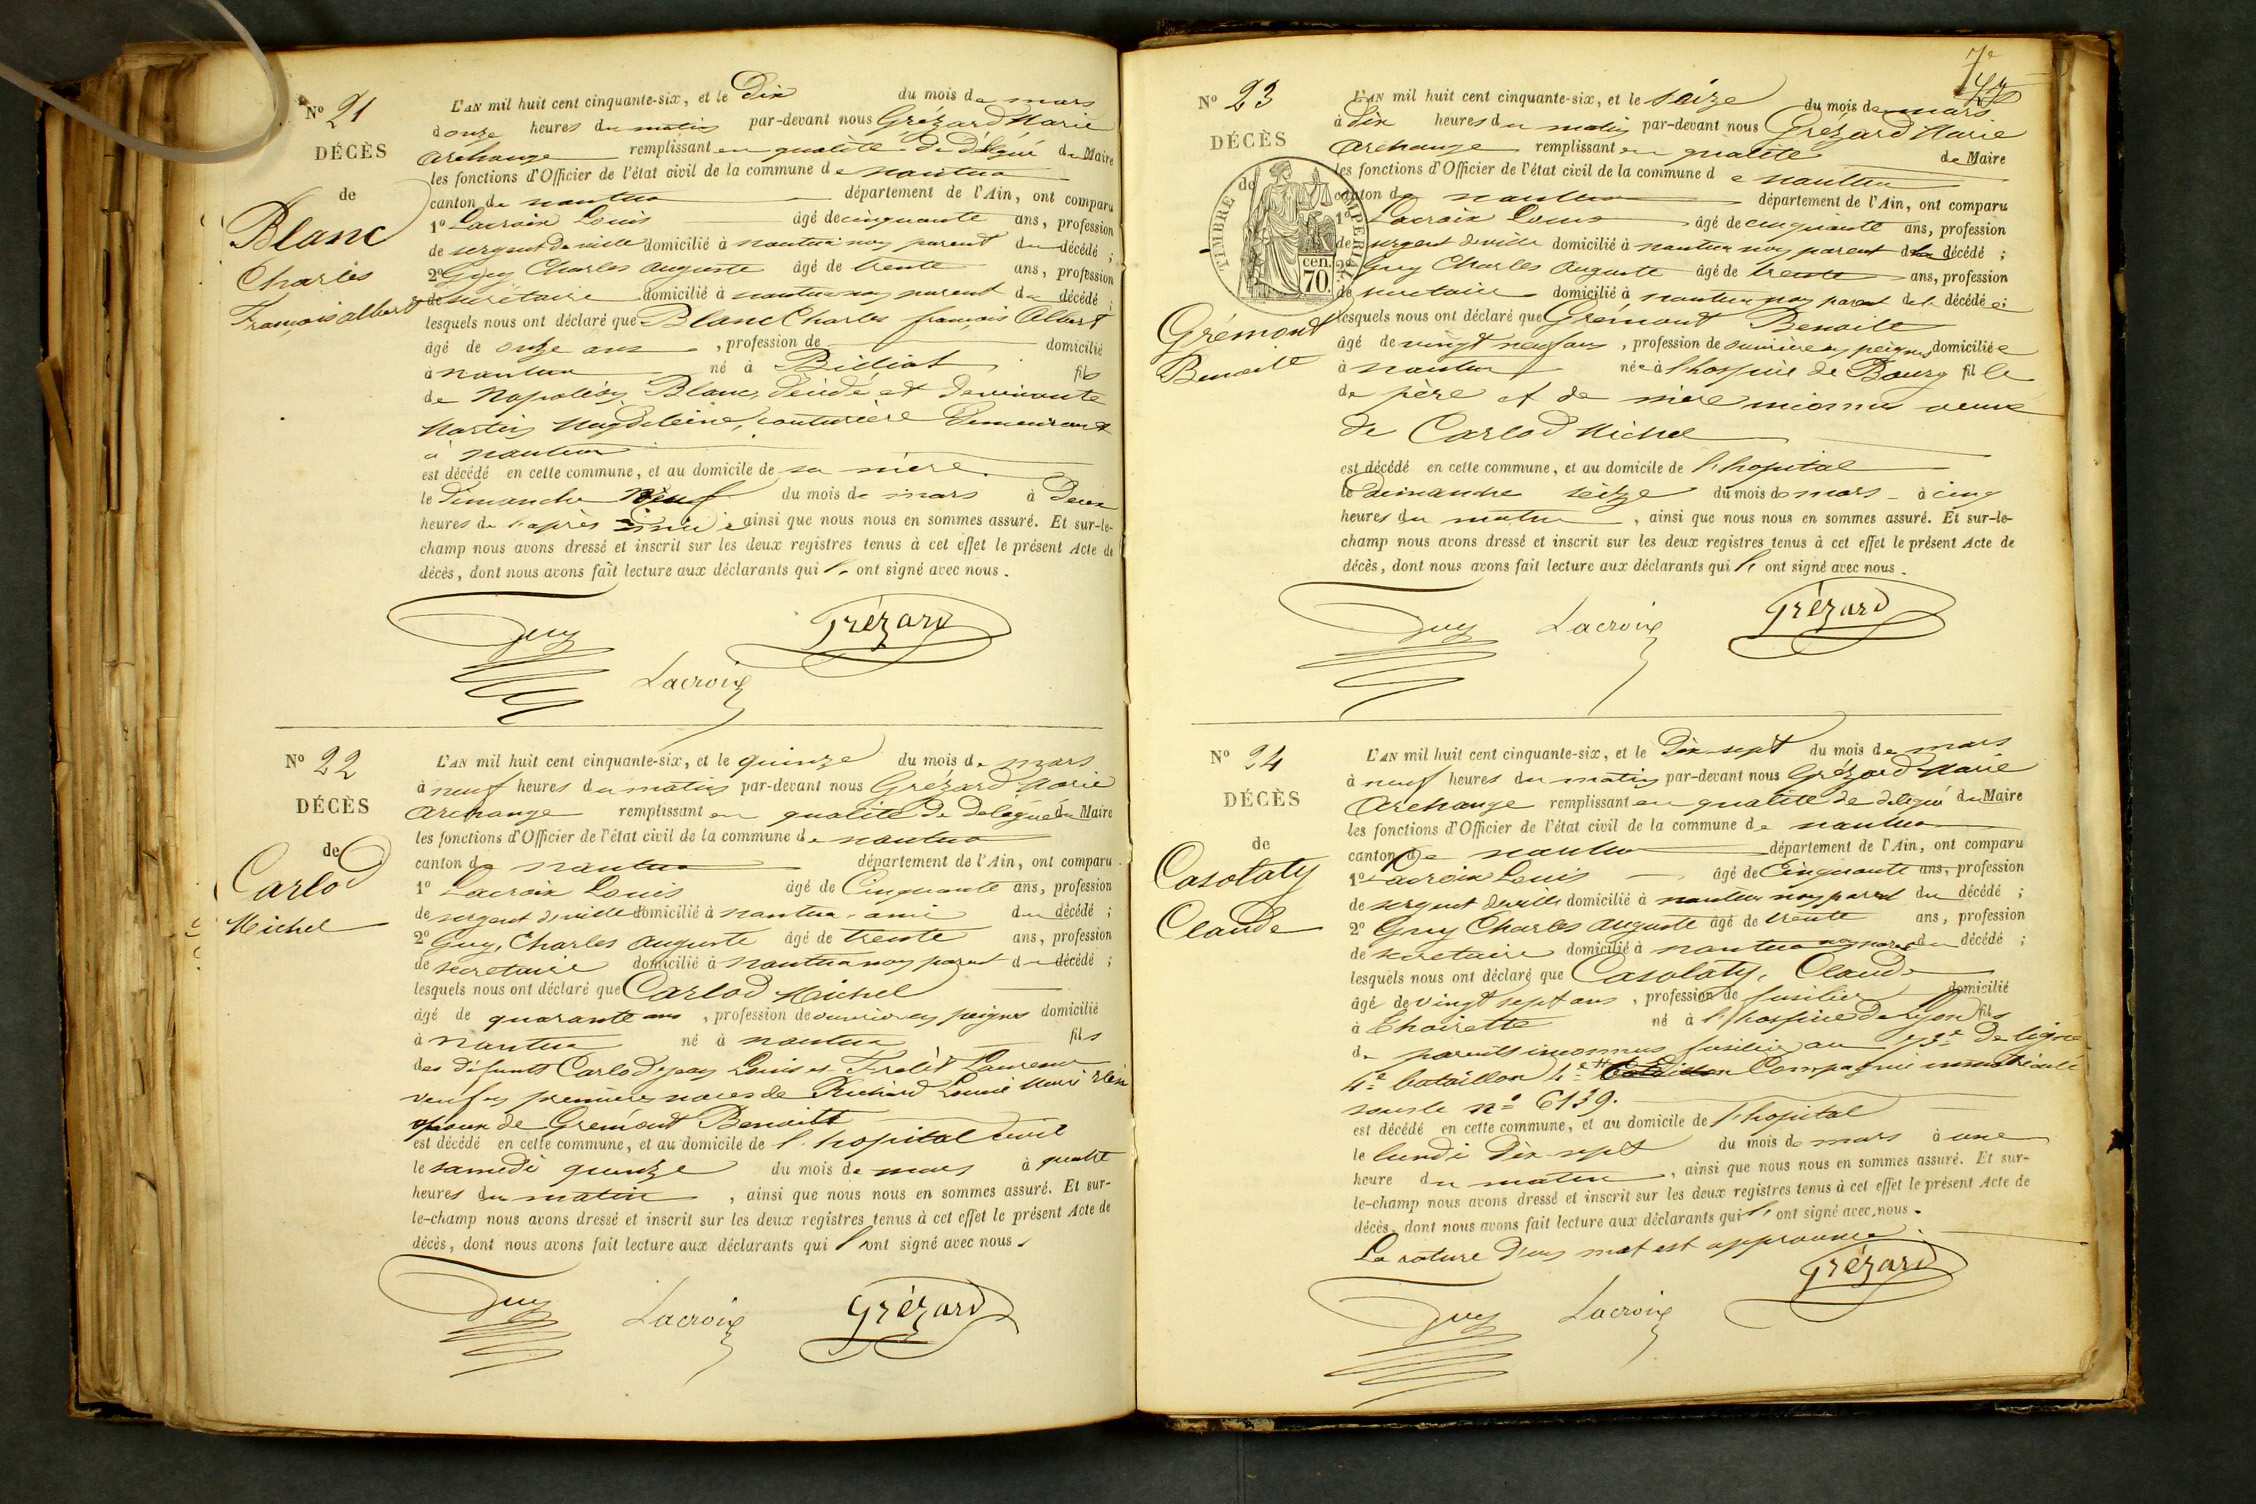 Nº 21
DÉCÈS
de
Blanc
Charles
françois albert
L'AN mil huit cent cinquante-six, et le Dix du mois de mars
à onze heures du matin par-devant nous Grézard Marie
Archange remplissant en qualité de délégué du Maire
les fonctions d'Officier de l'état civil de la commune de nantua
canton de nantua département de l'Ain, ont comparu
1º Lacroix Louis âgé de cinquante ans, profession
de sergent de ville domicilié à nantua non parent du décédé ;
2º Guy Charles auguste âgé de trente ans, profession
de secrétaire domicilié à nantua non parent du décédé ;
lesquels nous ont déclaré que Blanc Charles françois Albert
âgé de onze ans , profession de domicilié
à nantua né à Billiat fils
de Napoléon Blanc, décédé et de vivante
Martin Magdeleine, couturière Demeurant
à nantua
est décédé en cette commune, et au domicile de sa mère
le Dimanche Neuf du mois de mars à Deux
heures de l'après midi ainsi que nous nous en sommes assuré. Et sur-le-
champ nous avons dressé et inscrit sur les deux registres tenus à cet effet le présent Acte de
décès, dont nous avons fait lecture aux déclarants qui l' ont signé avec nous.
Guy Grézard
Lacroix
Nº 22
DÉCÈS
de
Carlod
Michel
L'AN mil huit cent cinquante-six, et le quinze du mois de mars
à neuf heures du matin par-devant nous Grézard Marie
Archange remplissant en qualité de délégué du Maire
les fonctions d'Officier de l'état civil de la commune de nantua
canton de nantua département de l'Ain, ont comparu
1º Lacroix Louis âgé de Cinquante ans, profession
de sergent de ville domicilié à nantua ami du décédé ;
2º Guy, Charles auguste âgé de trente ans, profession
de secretaire domicilié à nantua non parent du décédé ;
lesquels nous ont déclaré que Carlod Michel
âgé de quarante ans , profession de ouvrier en peignes domicilié
à nantua né à nantua fils
des défunts Carlod jean Louis et
veuf en premières noces de Richard Louise
époux de Grémont Benoitte
est décédé en cette commune, et au domicile de l'hopital civil
le samedi quinze du mois de mars à quatre
heures du matin , ainsi que nous nous en sommes assuré. Et sur-
le-champ nous avons dressé et inscrit sur les deux registres tenus à cet effet le présent Acte de
décès, dont nous avons fait lecture aux déclarants qui l'ont signé avec nous.
Guy Lacroix Grézard
7e
Nº 23
DÉCÈS
de
TIMBRE IMPÉRIAL
cen.
70.
Grémont
Benoite
L'AN mil huit cent cinquante-six, et le seize du mois de mars
à Dix heures du matin par-devant nous Grézard Marie
Archange remplissant en qualité de Maire
les fonctions d'Officier de l'état civil de la commune de nantua
canton de nantua département de l'Ain, ont comparu
1º Lacroix Louis âgé de cinquante ans, profession
de sergent de ville domicilié à nantua non parent de la décédé ;
2º Guy Charles auguste âgé de trente ans, profession
de secretaire domicilié à nantua non parent de l décédée
lesquels nous ont déclaré que Grémont Benoite
âgé de vingt neuf ans , profession de ouvrière en peignes domiciliée
à nantua née à l'hospice de Bourg fille
de père et de mère inconnus veuve
de Carlod Michel
est décédé en cette commune, et au domicile de l'hopital
le dimanche seize du mois de mars à cinq
heures du matin , ainsi que nous nous en sommes assuré. Et sur-le-
champ nous avons dressé et inscrit sur les deux registres tenus à cet effet le présent Acte de
décès, dont nous avons fait lecture aux déclarants qui l' ont signé avec nous.
Guy Lacroix Grézard
Nº 24
DÉCÈS
de
Casolaty
Claude
L'AN mil huit cent cinquante-six, et le Dix-sept du mois de mars
à neuf heures du matin par-devant nous Grézard Marie
Archange remplissant en qualité de délégué du Maire
les fonctions d'Officier de l'état civil de la commune de nantua
canton de nantua département de l'Ain, ont comparu
1º Lacroix Louis âgé de Cinquante ans, profession
de sergent de ville domicilié à nantua non parent du décédé ;
2º Guy Charles auguste âgé de trente ans, profession
de secretaire domicilié à nantua non parent du décédé ;
lesquels nous ont déclaré que Casolaty, Claude
âgé de vingt sept ans , profession de fusilier domicilié
à Thoirette né à l'hospice de Lyon fils
de parents inconnus fusilier au 73e De ligne
4e bataillon 4e bataillon Compagnie immatriculé
sous le nº 6139.
est décédé en cette commune, et au domicile de l'hopital
le lundi Dix sept du mois de mars à une
heure du matin , ainsi que nous nous en sommes assuré. Et sur-
le-champ nous avons dressé et inscrit sur les deux registres tenus à cet effet le présent Acte de
décès, dont nous avons fait lecture aux déclarants qui l' ont signé avec nous.
La rature d'un mot est approuvée.
Guy Lacroix Grézard